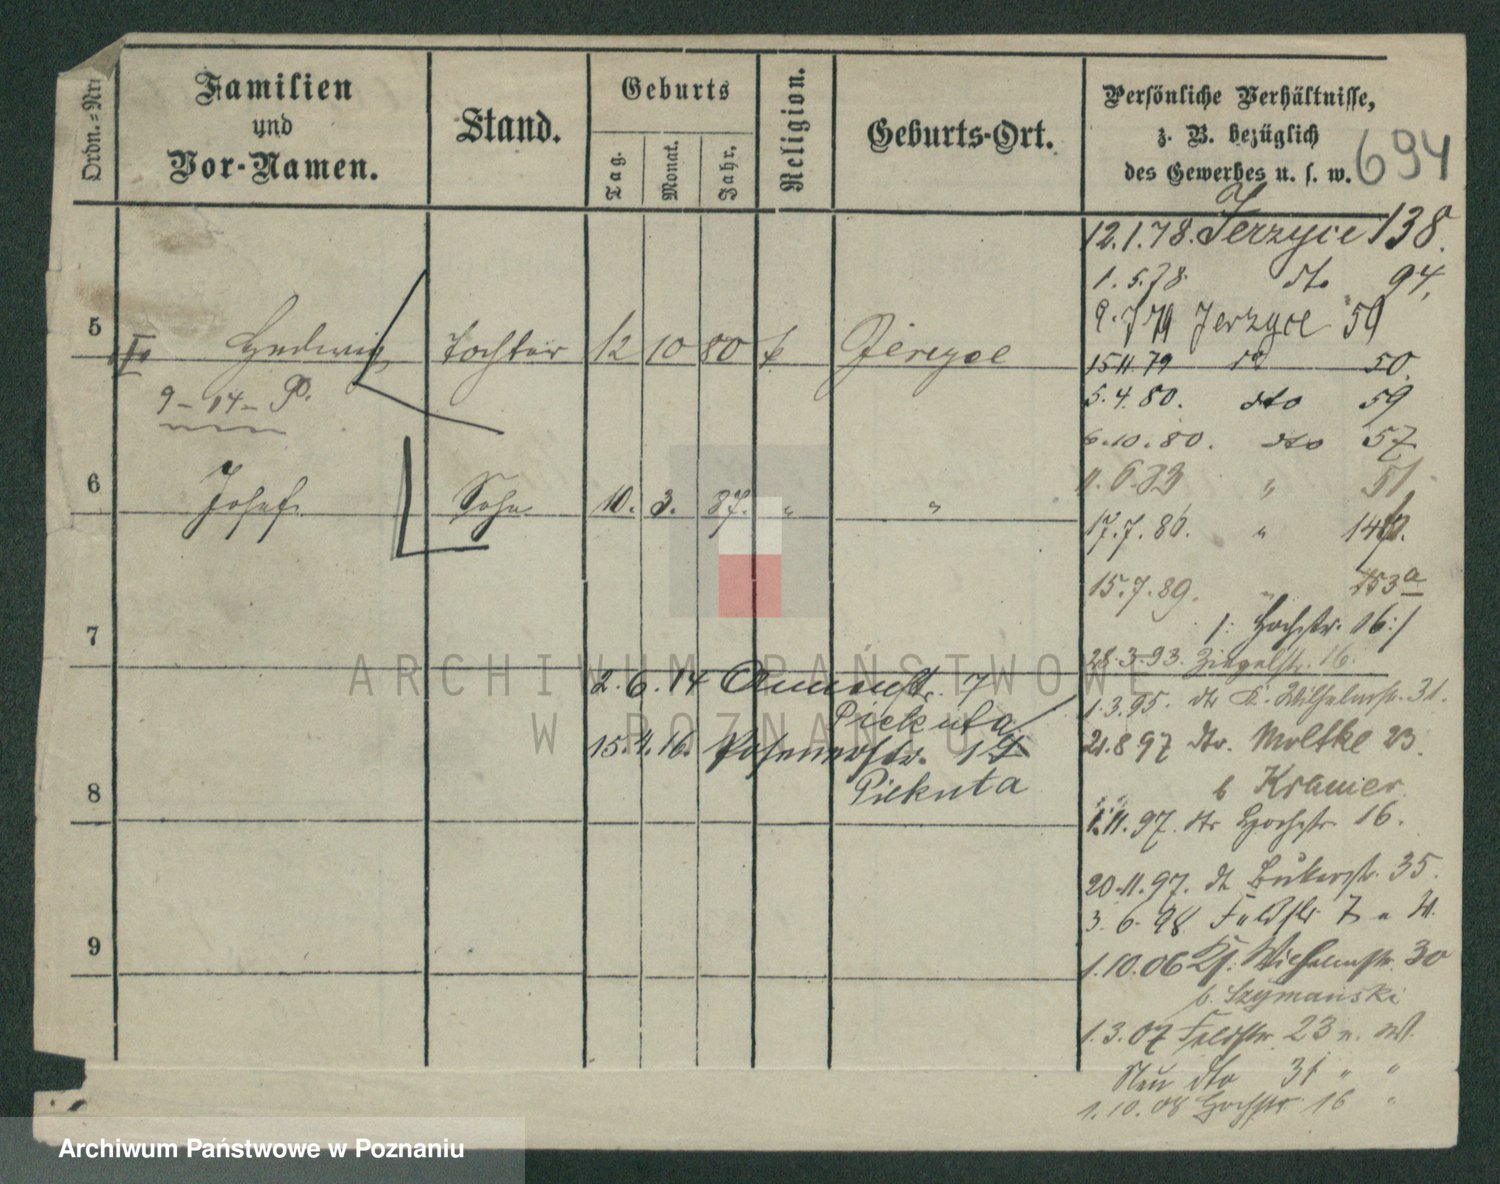 Ordn.=Nr.
Familien
und
Vor-Namen.
Stand.
Geburts
Tag.
Monat.
Jahr.
Religion.
Geburts-Ort.
Persönliche Verhältnisse,
z. B. bezüglich
des Gewerbes u. s. w.
694
12.1.78. Jerzyce 138.
1.5.78. dto 94,
9.7.79 Jerzyce 59
5 Hedwig Tochter 12 10 80 k Jerzyce
15.11.79 do 50.
9-14- P.
5.4.80. dto 59
6.10.80. dto 57
6 Josef. Sohn 10. 3. 87. " "
51
17.7.86. "
15.7.89. " 153a
/: Hochstr. 16:/
7
28.3.93. Ziegelstr. 16.
2.6.14 7
Piekuta
1.3.95. Wilhelmstr. 31.
15.4.16. Posenerstr.
21.8 97 dto. Moltke 23.
8 Piekuta
b Kramer.
1.11.97. Hochstr. 16.
20.11.97. Bukerstr. 35.
3.6.98 Feldstr. 7
9
1.10.06 Wilhelmstr. 30
b. Szymanski
1.3.07 Feldstr. 23
Neu dto 31 " "
1.10.08 Hochstr 16 "
ARCHIWUM PAŃSTWOWE
W POZNANIU
Archiwum Państwowe w Poznaniu